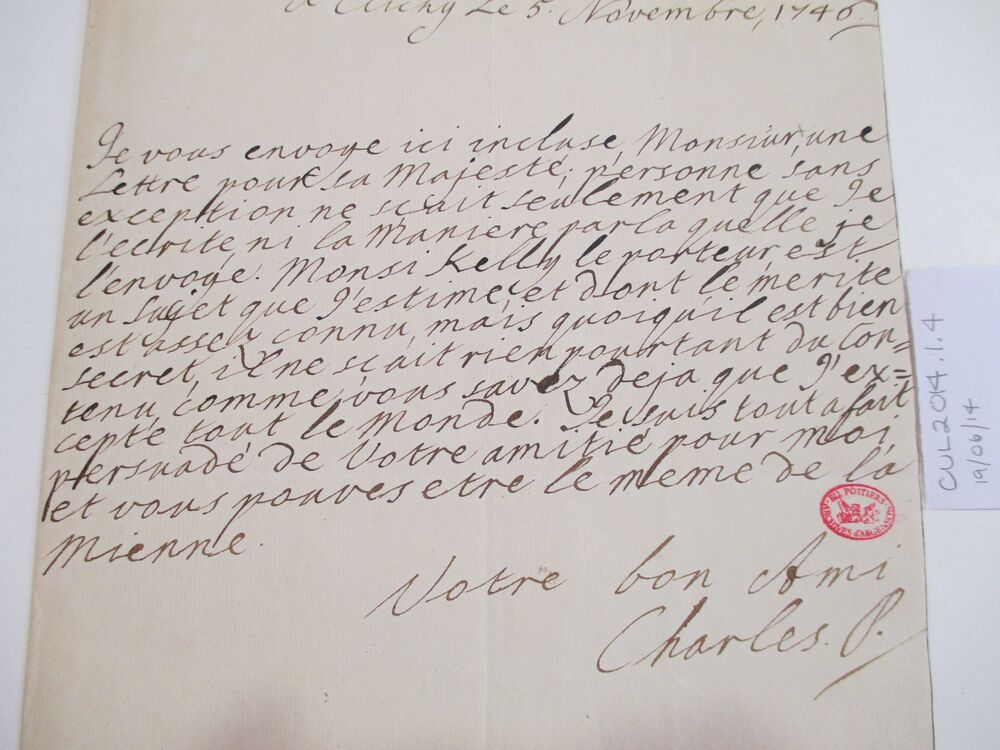 a Clichy Le 5. Novembre, 1746.
Je vous envoye ici incluse Monsiur, une
Lettre pour sa Majesté, personne sans
exception ne sçait seulement que Je
l'ecrite ni la Maniere par la quelle je
l'envoye. Monsi Kelly le porteur est
un sujet que J'estime, et dont le merite
est assez connu, mais quoiqu'il est bien
secret, il ne sçait rien pourtant du Con=
tenu, comme vous savez deja que J'ex=
cepte tout le Monde. Je suis tout a fait
persuadé de Votre amitié pour moi,
et vous pouves etre le meme de la
Mienne.
Votre bon Ami
Charles. P.
BU. POITIERS
ARCHIVES d'ARGENSON
CUL2014.1.4
19/06/14